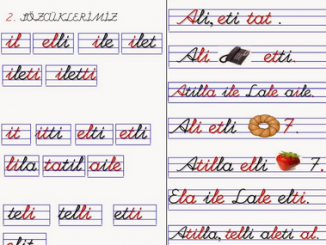 2. SÖZCÜKLERİMİZ
il elli ile ilet
ileti iletti
it itti elti etli
lila tatil aile
teli telli etti
elit
Ali, eti tat.
Ali etti.
Atilla ile Lale aile.
Ali etli 7.
Atilla elli 7.
Ela ile Lale elti.
Atilla, telli aleti al.